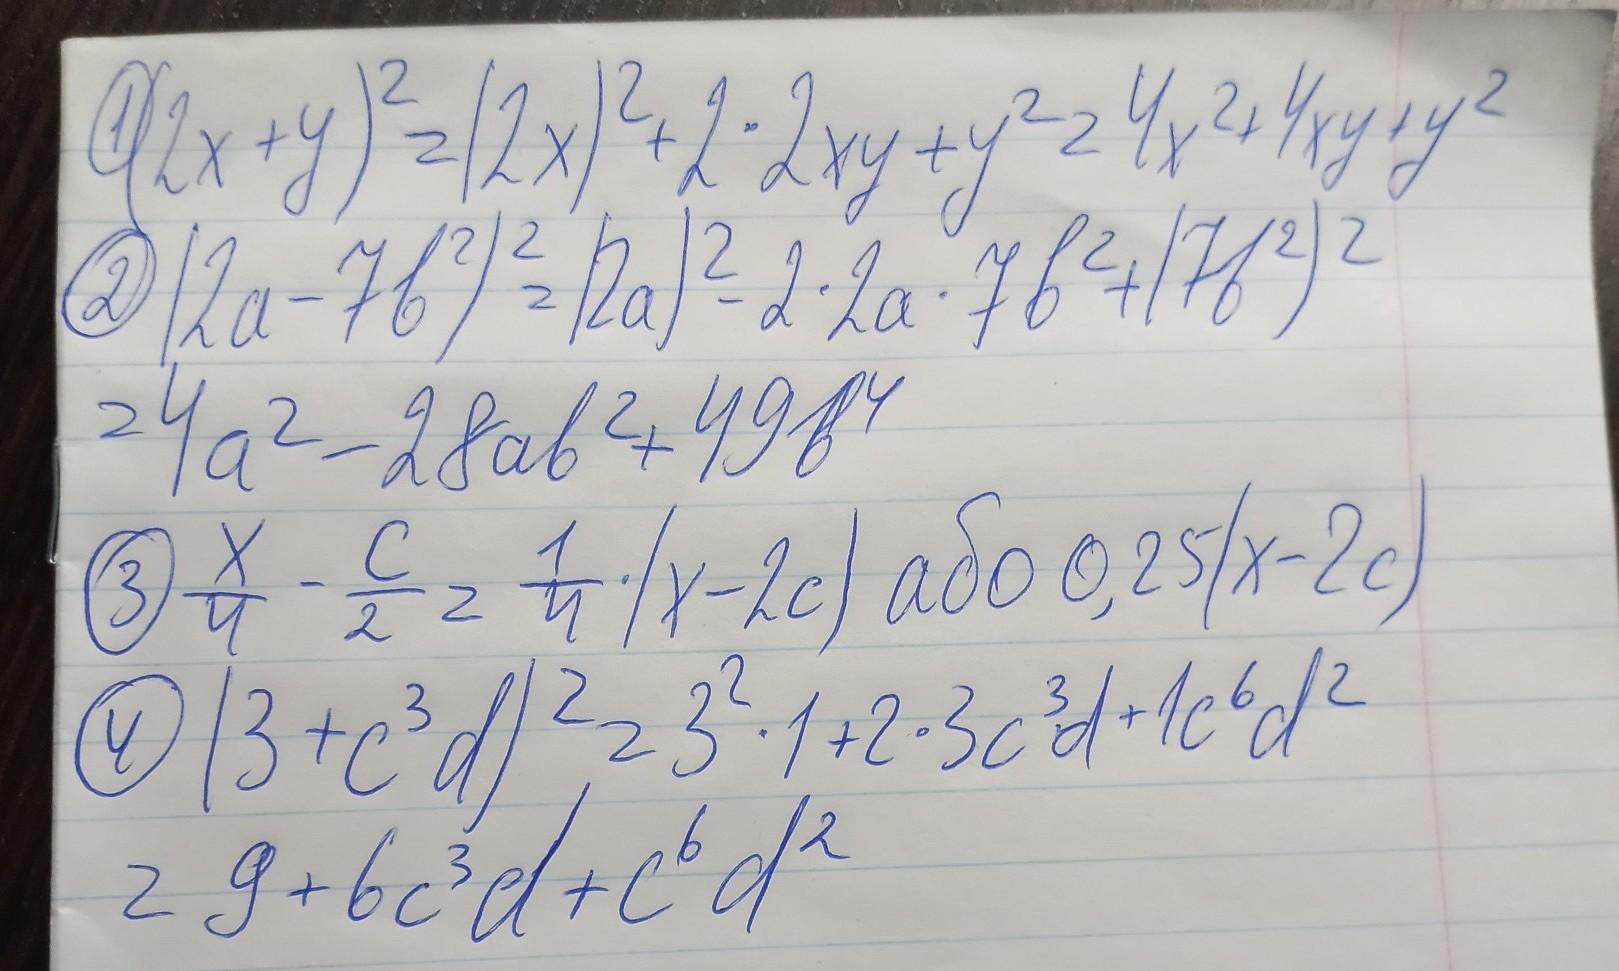 ① (2x+y)² = (2x)² + 2·2xy + y² = 4x² + 4xy + y²
② (2a-7b²)² = (2a)² - 2·2a·7b² + (7b²)²
= 4a² - 28ab² + 49b⁴
③ x/4 - c/2 = 1/4·(x-2c) або 0,25(x-2c)
④ (3+c³d)² = 3²·1+2·3c³d+1c⁶d²
= 9+6c³d+c⁶d²